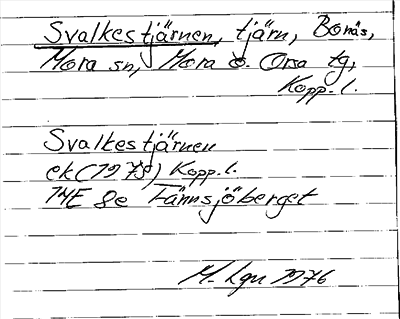 Svalkestjärnen, tjärn, Bonäs,
Mora sn, Mora o. Orsa tg,
Kopp. l.
Svalkestjärnen
ek (1978) Kopp. l.
14E 8e Fännsjöberget
M. Lgn 1976